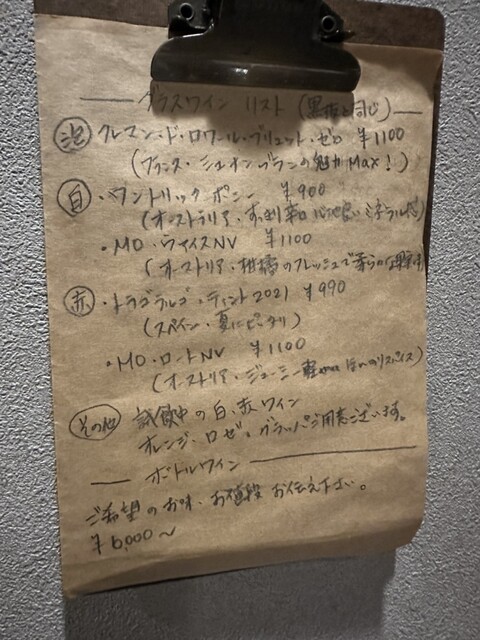 グラスワイン リスト (黒板と同じ)
泡 クレマン・ド・ロワール・ブリュット・ゼロ ¥1100
(フランス・シュナンブランの魅力Max!)
白 ・タントリック ボニー ¥900
(オーストラリア・すっきり辛口 心地良いミネラル感)
・MO・ヴァイスNV ¥1100
(オーストリア・柑橘のフレッシュで柔らかな果実味)
赤 ・トラゴラルゴ・ティント2021 ¥990
(スペイン・夏にピッタリ)
・MO・ロートNV ¥1100
(オーストリア・ジューシー軽やか ほんのりスパイス)
その他 試飲中の白、赤ワイン
オレンジ・ロゼ、グラッパご用意ございます。
ボトルワイン
ご希望のお味、お値段 お伝え下さい。
¥6,000〜